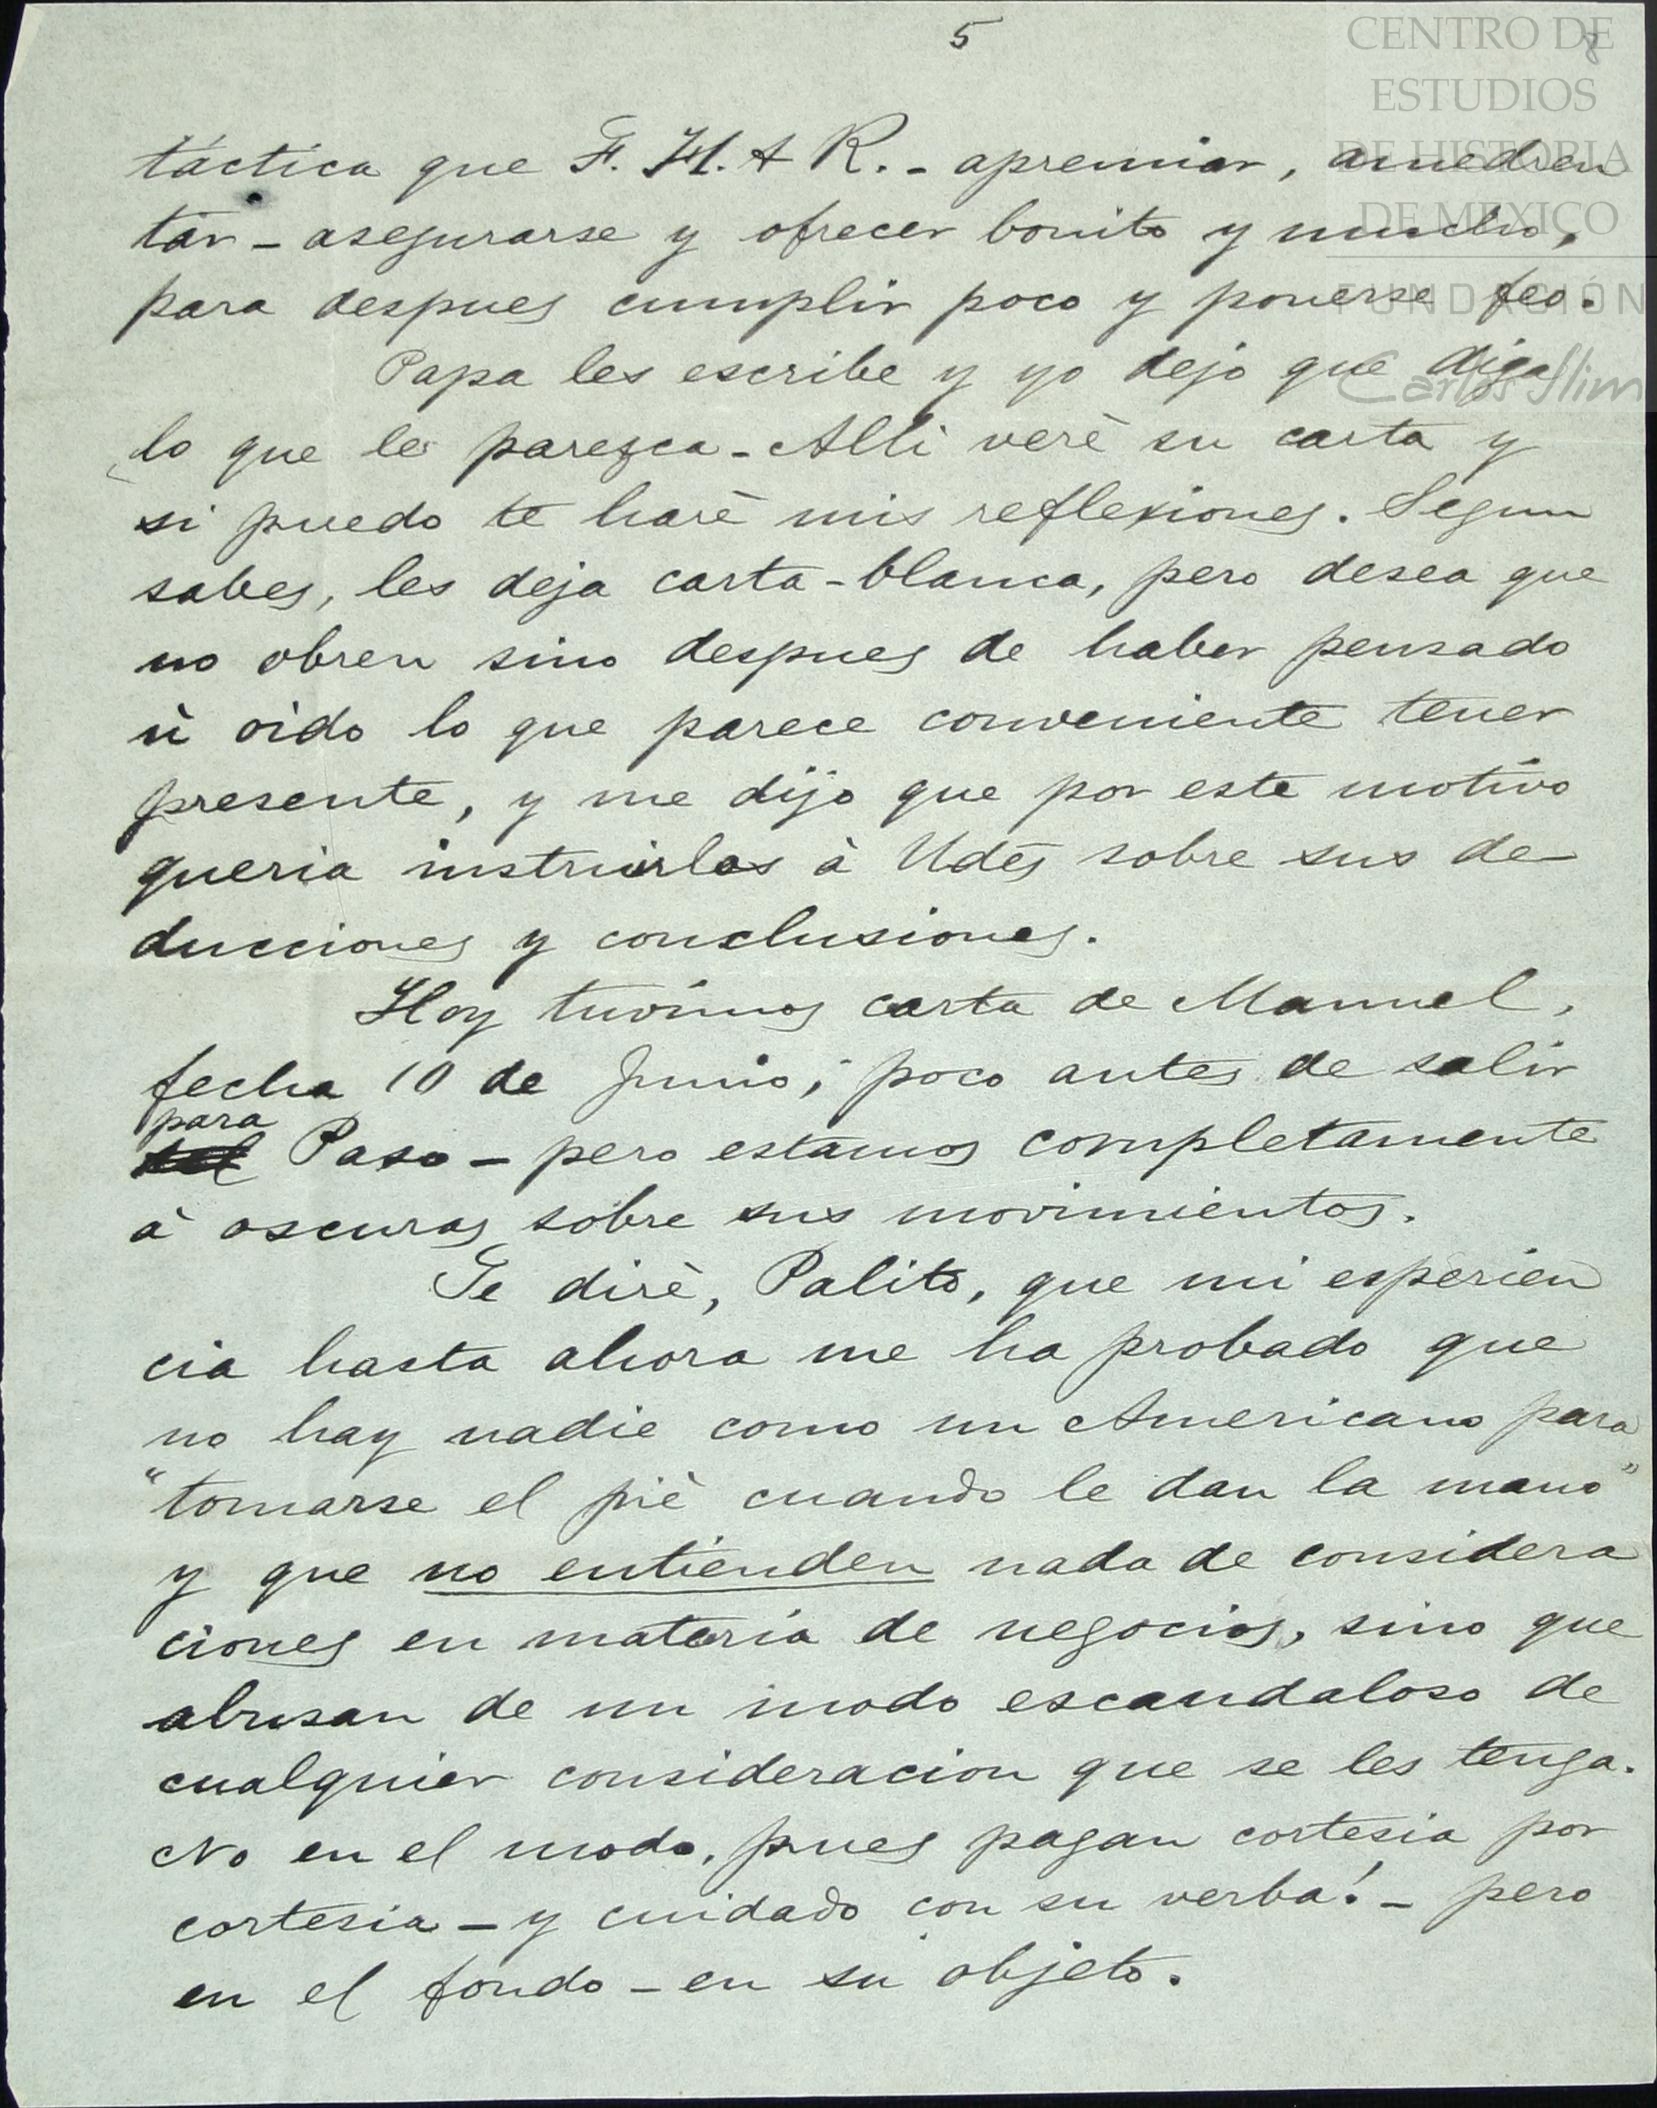 5
8
CENTRO DE
ESTUDIOS
DE HISTORIA
DE MEXICO
FUNDACIÓN
Carlos Slim
táctica que F. H. & R. - apremiar, amedren
tar - asegurarse y ofrecer bonito y mucho,
para despues cumplir poco y ponerse feo.
Papa les escribe y yo dejo que diga
lo que le parezca - Alli verè su carta y
si puedo te harè mis reflexiones. Segun
sabes, les deja carta-blanca, pero desea que
no obren sino despues de haber pensado
ù oido lo que parece conveniente tener
presente, y me dijo que por este motivo
queria instruirlos à Udes sobre sus de-
ducciones y conclusiones.
Hoy tuvimos carta de Manuel,
fecha 10 de Junio; poco antes de salir
para
Paso - pero estamos completamente
à oscuras sobre sus movimientos.
Te dirè, Palito, que mi esperien
cia hasta ahora me ha probado que
no hay nadie como un Americano para
"tomarse el piè cuando le dan la mano"
y que no entienden nada de considera
ciones en materia de negocios, sino que
abusan de un modo escandaloso de
cualquier consideracion que se les tenga.
No en el modo, pues pagan cortesia por
cortesia - y cuidado con su verba! - pero
en el fondo - en su objeto.